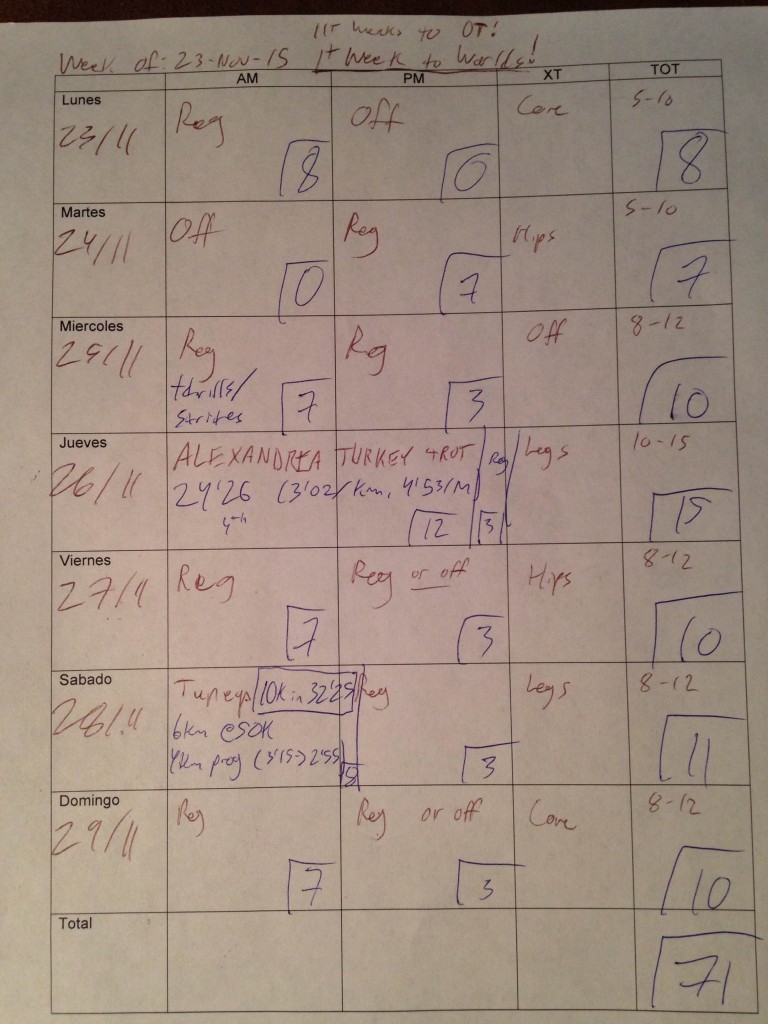 11+ weeks to OT!
Week of: 23-Nov-15 1+ Week to Worlds!
AM PM XT TOT
Lunes
23/11 Reg 8 Off 0 Core 5-10 8
Martes
24/11 Off 0 Reg 7 Hips 5-10 7
Miercoles
25/11 Reg 7 Reg 3 Off 8-12 10
+drills/
strides
Jueves
26/11 ALEXANDRIA TURKEY TROT Reg Legs 10-15
24'26 (3'02/km, 4'53/M)
4th 12 3 15
Viernes
27/11 Reg 7 Reg or off 3 Hips 8-12 10
Sabado
28/11 10K in 32'25 Reg Legs 8-12
6km @50K
4km prog (3'15->2'55) 8 3 11
Domingo
29/11 Reg 7 Reg or off 3 Core 8-12 10
Total 71